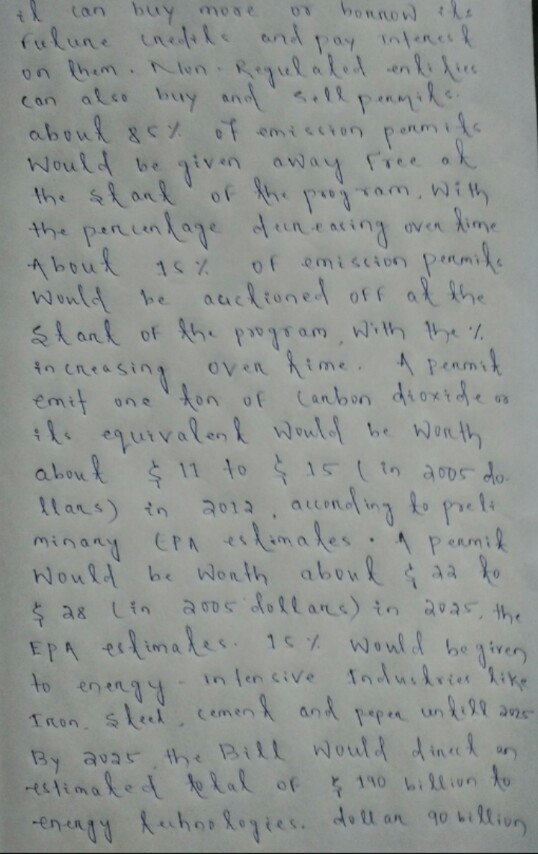 it can buy more or borrow its
future credits and pay interest
on them. Non-Regulated entities
can also buy and sell permits.
about 85% of emission permits
would be given away free at
the start of the program. With
the percentage decreasing over time
About 15% of emission permits
would be auctioned off at the
start of the program, with the %
increasing over time. A permit
emit one ton of carbon dioxide or
its equivalent would be worth
about $ 11 to $ 15 (in 2005 do-
llars) in 2012, according to preli
minary EPA estimates. A permit
would be worth about $ 22 to
$ 28 (in 2005 dollars) in 2025, the
EPA estimates. 15% would be given
to energy-intensive Industries like
Iron, steel, cement and paper untill 2025
By 2025, the Bill would direct an
estimated total of $ 190 billion to
energy technologies. dollar 90 billion